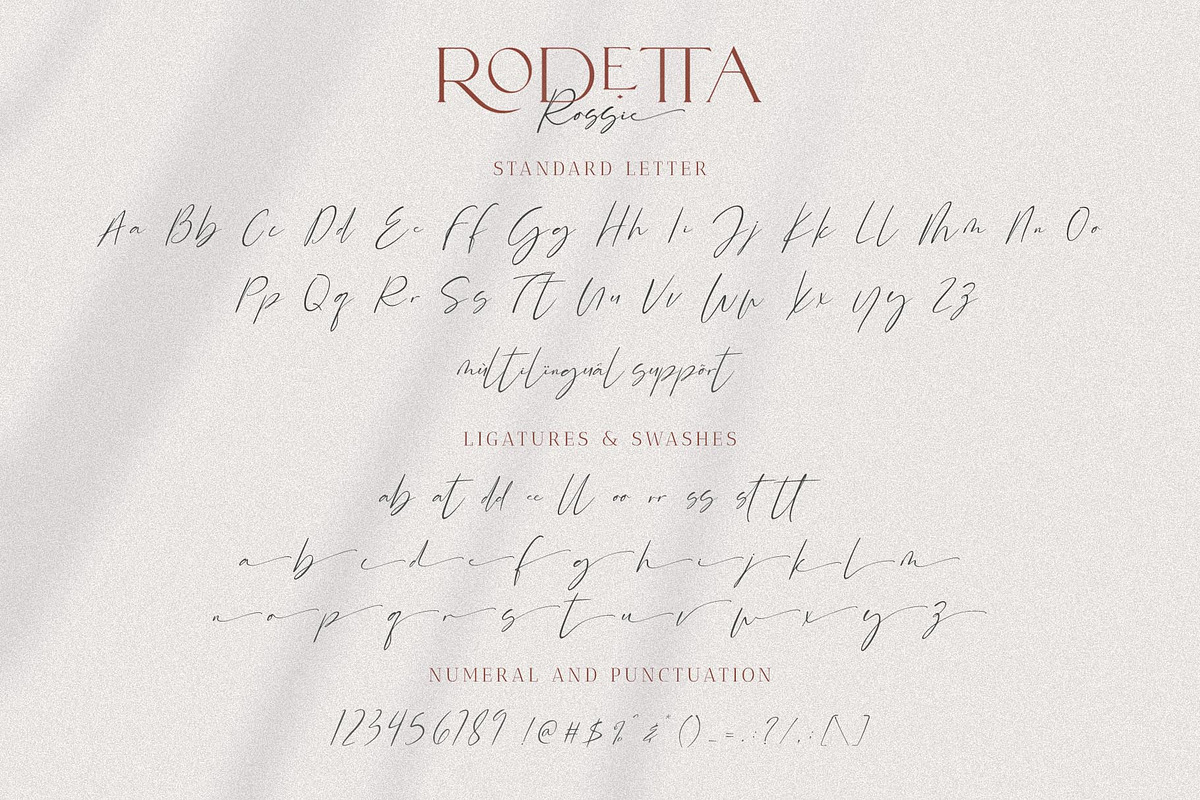 RODETTA
Rossie
STANDARD LETTER
Aa Bb Cc Dd Ee Ff Gg Hh Ii Jj Kk Ll Mm Nn Oo
Pp Qq Rr Ss Tt Uu Vv Ww Xx Yy Zz
mùltilïnguâl suppõrt
LIGATURES & SWASHES
ab at dd ee ll oo rr ss st tt
a b c d e f g h i j k l m
n o p q r s t u v w x y z
NUMERAL AND PUNCTUATION
123456789 !@#$%^&*()_=.:?/,:[\]